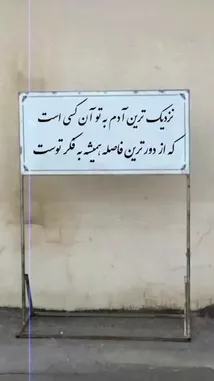 نزدیک ترین آدم به تو آن کسی است
که از دورترین فاصله همیشه به فکر توست